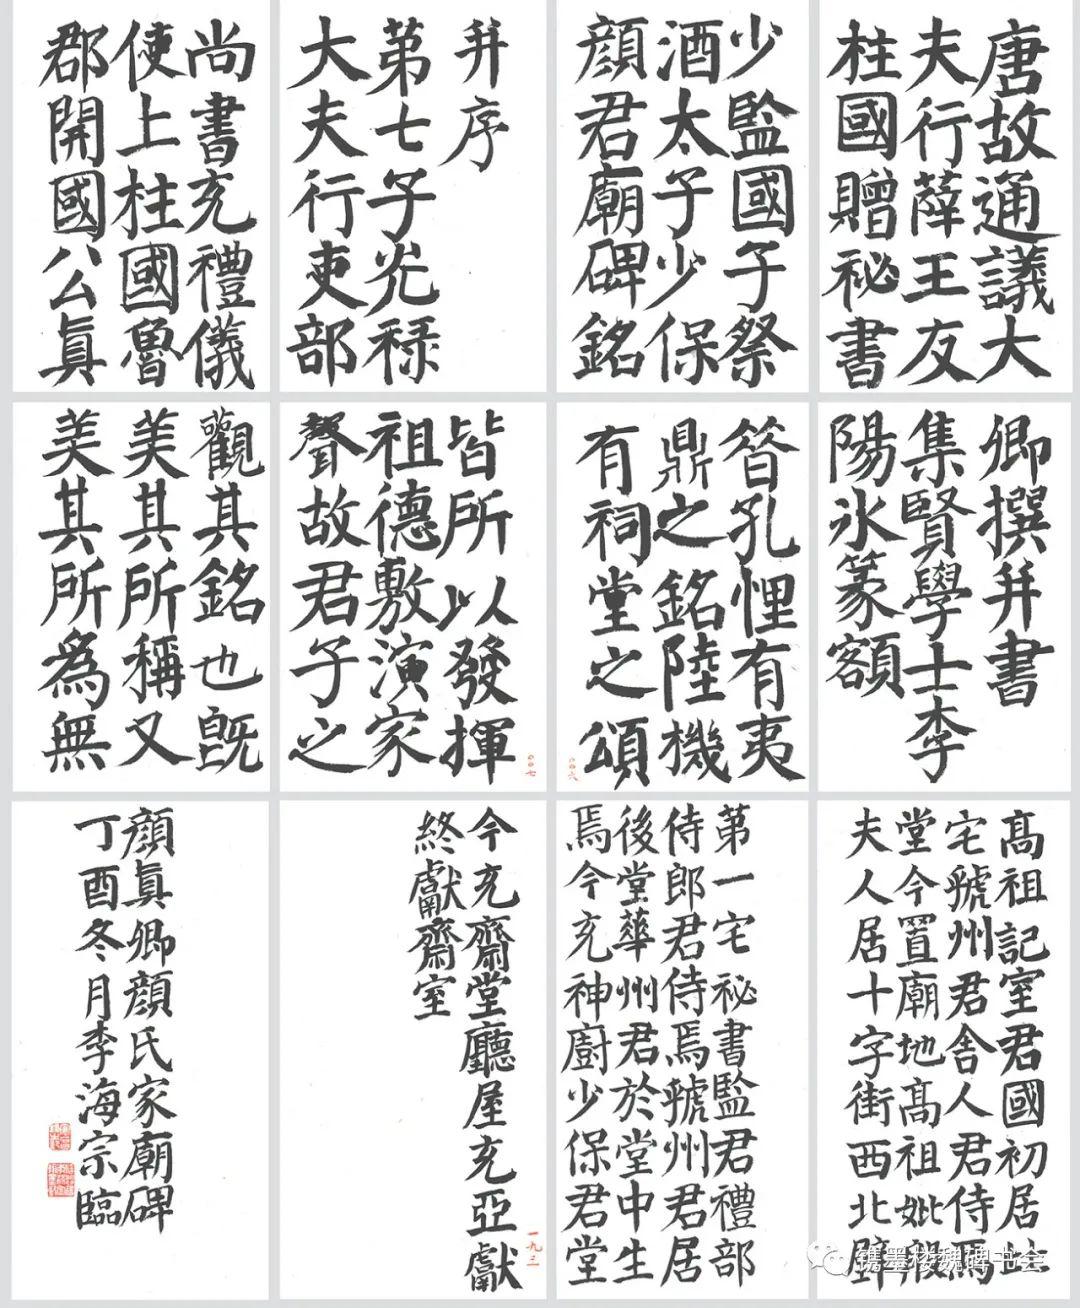 唐故通議大
夫行薛王友
柱國贈祕書
少監國子祭
酒太子少保
顏君廟碑銘
并序
第七子光祿
大夫行吏部
尚書充禮儀
使上柱國魯
郡開國公真
卿撰并書
集賢學士李
陽冰篆額
昔孔悝有夷
鼎之銘陸機
有祠堂之頌
二〇〇六
皆所以發揮
祖德敷演家
聲故君子之
二〇〇七
觀其銘也既
美其所稱又
美其所為無
高祖記室君國初居此
宅虢州君舍人君侍焉
堂今置廟地高祖妣殷
夫人居十字街西北壁
第一宅祕書監君禮部
侍郎君侍焉虢州君居
後堂華州君於堂中生
焉今充神廚少保君堂
今充齋堂廳屋充亞獻
終獻齋室
一九三
顏真卿顏氏家廟碑
丁酉冬月李海宗臨
镌墨楼魏碑书会